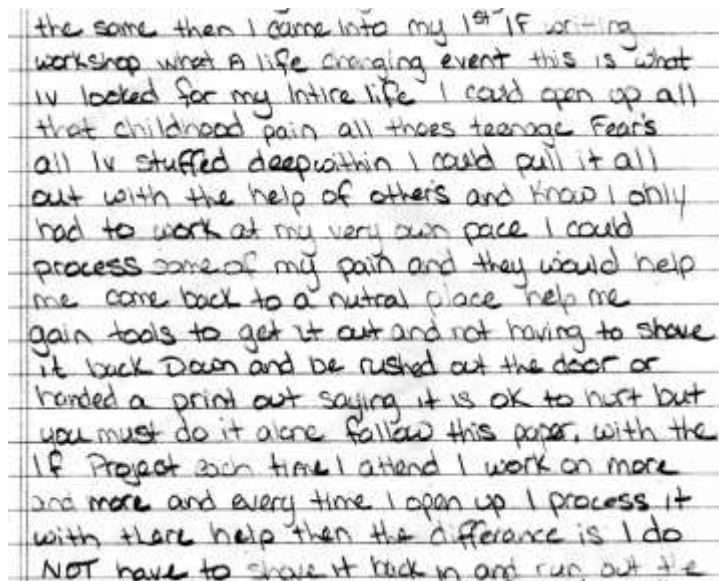 the same then I came into my 1st IF writing
workshop what A life changing event this is what
Iv looked for my Intire life I could open up all
that childhood pain all thoes teenage Fear's
all Iv stuffed deep within I could pull it all
out with the help of other's and know I only
had to work at my very own pace I could
process some of my pain and they would help
me come back to a nutral place help me
gain tools to get it out and not having to shove
it back Down and be rushed out the door or
handed a print out saying it is ok to hurt but
you must do it alone follow this paper, with the
If Project each time I attend I work on more
and more and every time I open up I process it
with there help then the difference is I do
NOT have to shove it back in and run out the